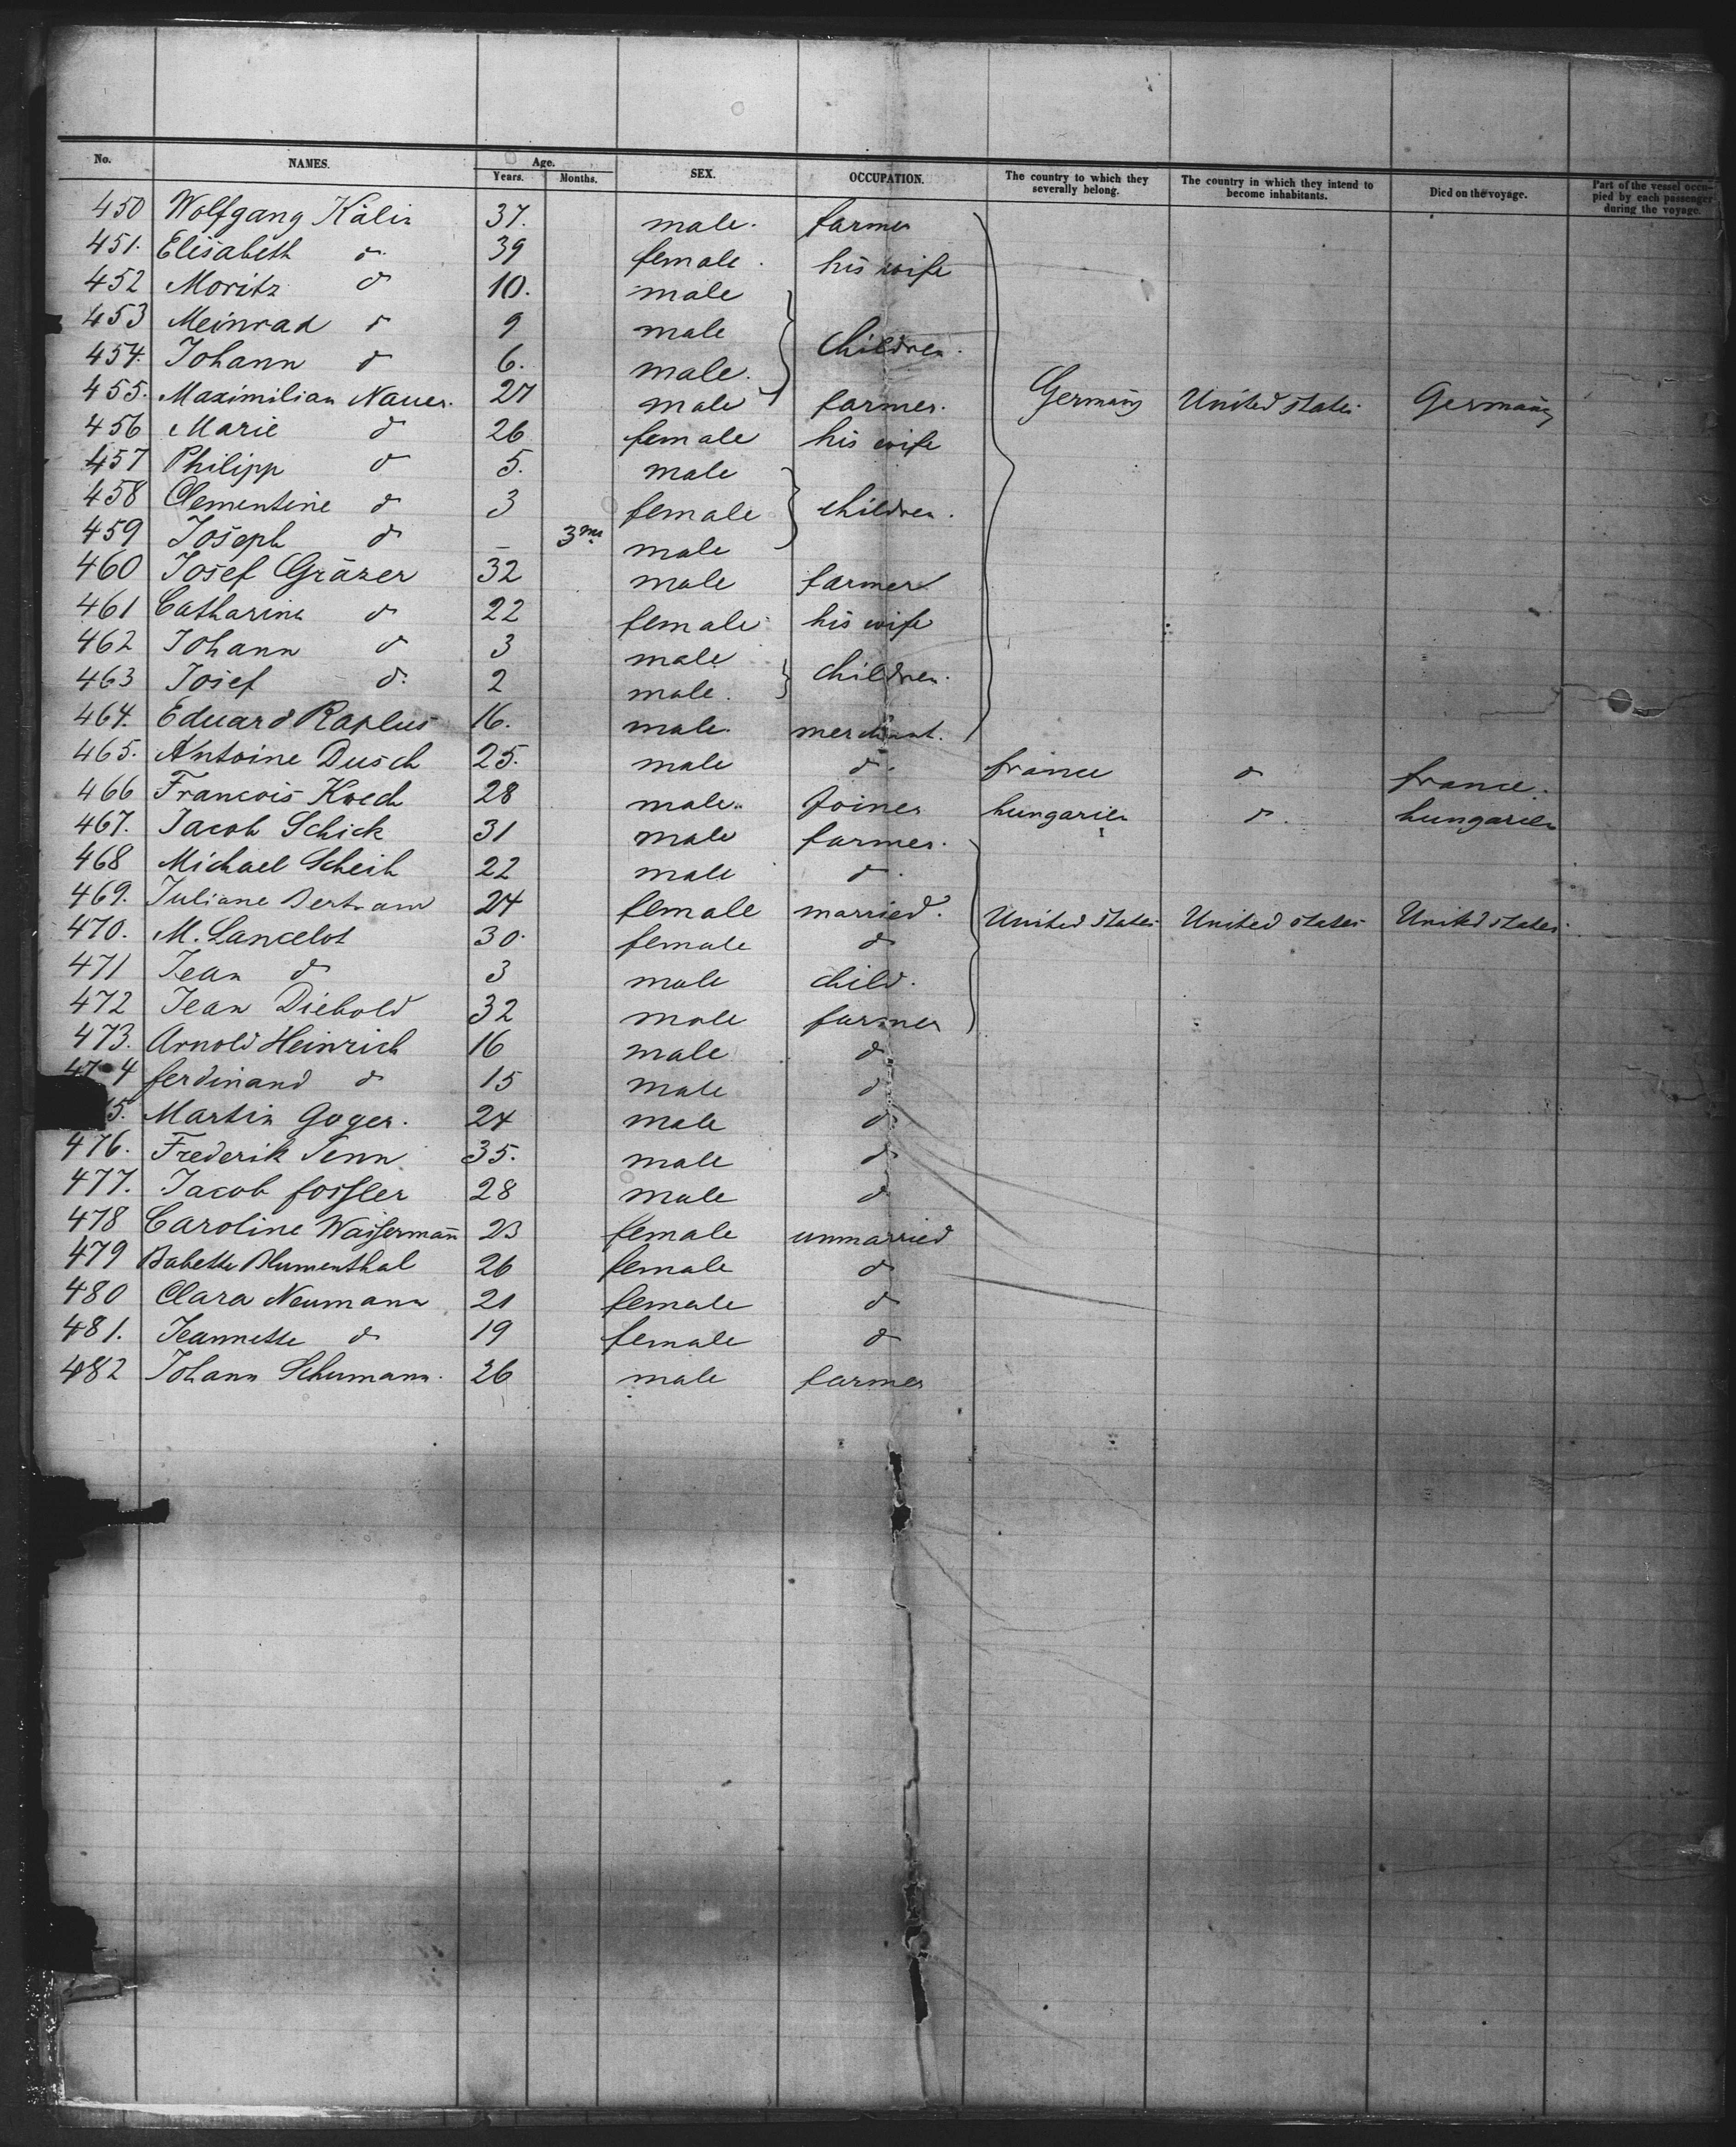 No. NAMES. Age. Years. Months. SEX. OCCUPATION. The country to which they severally belong. The country in which they intend to become inhabitants. Died on the voyage. Part of the vessel occupied by each passenger during the voyage.
450 Wolfgang Kälin 37. male. farmer
451. Elisabeth d 39 female. his wife
452 Moritz d 10. male
453 Meinrad d 9 male children.
454. Johann d 6. male.
455. Maximilian Nauer. 27 male farmer. Germany United states Germany
456 Marie d 26 female his wife
457 Philipp d 5. male
458 Clementine d 3 female children.
459 Joseph d – 3 ms male
460 Josef Gräzer 32 male farmer
461 Catharina d 22 female his wife
462 Johann d 3 male children.
463 Josef d. 2 male.
464. Eduard Raplus 16. male. merchant.
465. Antoine Dusch 25. male d. france d france.
466 Francois Koech 28 male. Joiner hungarien d. hungarien
467. Jacob Schick 31 male farmer.
468 Michael Scheih 22 male d.
469. Juliane Bertram 24 female married. United States United states United states.
470. M. Lancelot 30. female d
471 Jean d 3 male child.
472 Jean Diebold 32 male farmer
473. Arnold Heinrich 16 male d
474 ferdinand d 15 male d
5. Martin Goger. 24 male d
476. Frederik Senn 35. male d
477. Jacob fossler 28 male d
478 Caroline Wassermañ 23 female unmarried
479 Babette Blumenthal 26 female d
480 Clara Neumann 21 female d
481. Jeannette d 19 female d
482 Johann Schumann. 26 male farmer